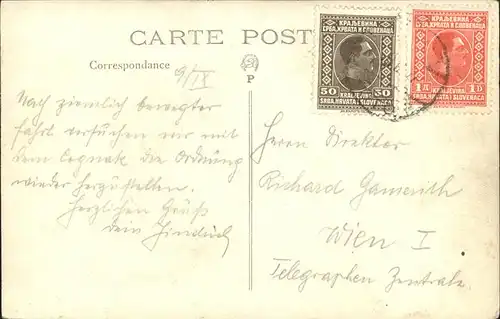 CARTE POST
Correspondance
P
9/IX
КРАЉЕВИНА
СРБА, ХРВАТА И СЛОВЕНАЦА
50 50
KRALJEVINA
SRBA, HRVATA I SLOVENACA
КРАЉЕВИНА
СРБА, ХРВАТА И СЛОВЕНАЦА
1 Д 1 D
KRALJEVINA
SRBA, HRVATA I SLOVENACA
Nach ziemlich bewegter
Fahrt versuchen wir mit
dem Cognak die Ordnung
wieder herzustellen.
Herzlichen Gruß
Dein
Herrn Direktor
Richard Gamerith
Wien I
Telegraphen Zentrale